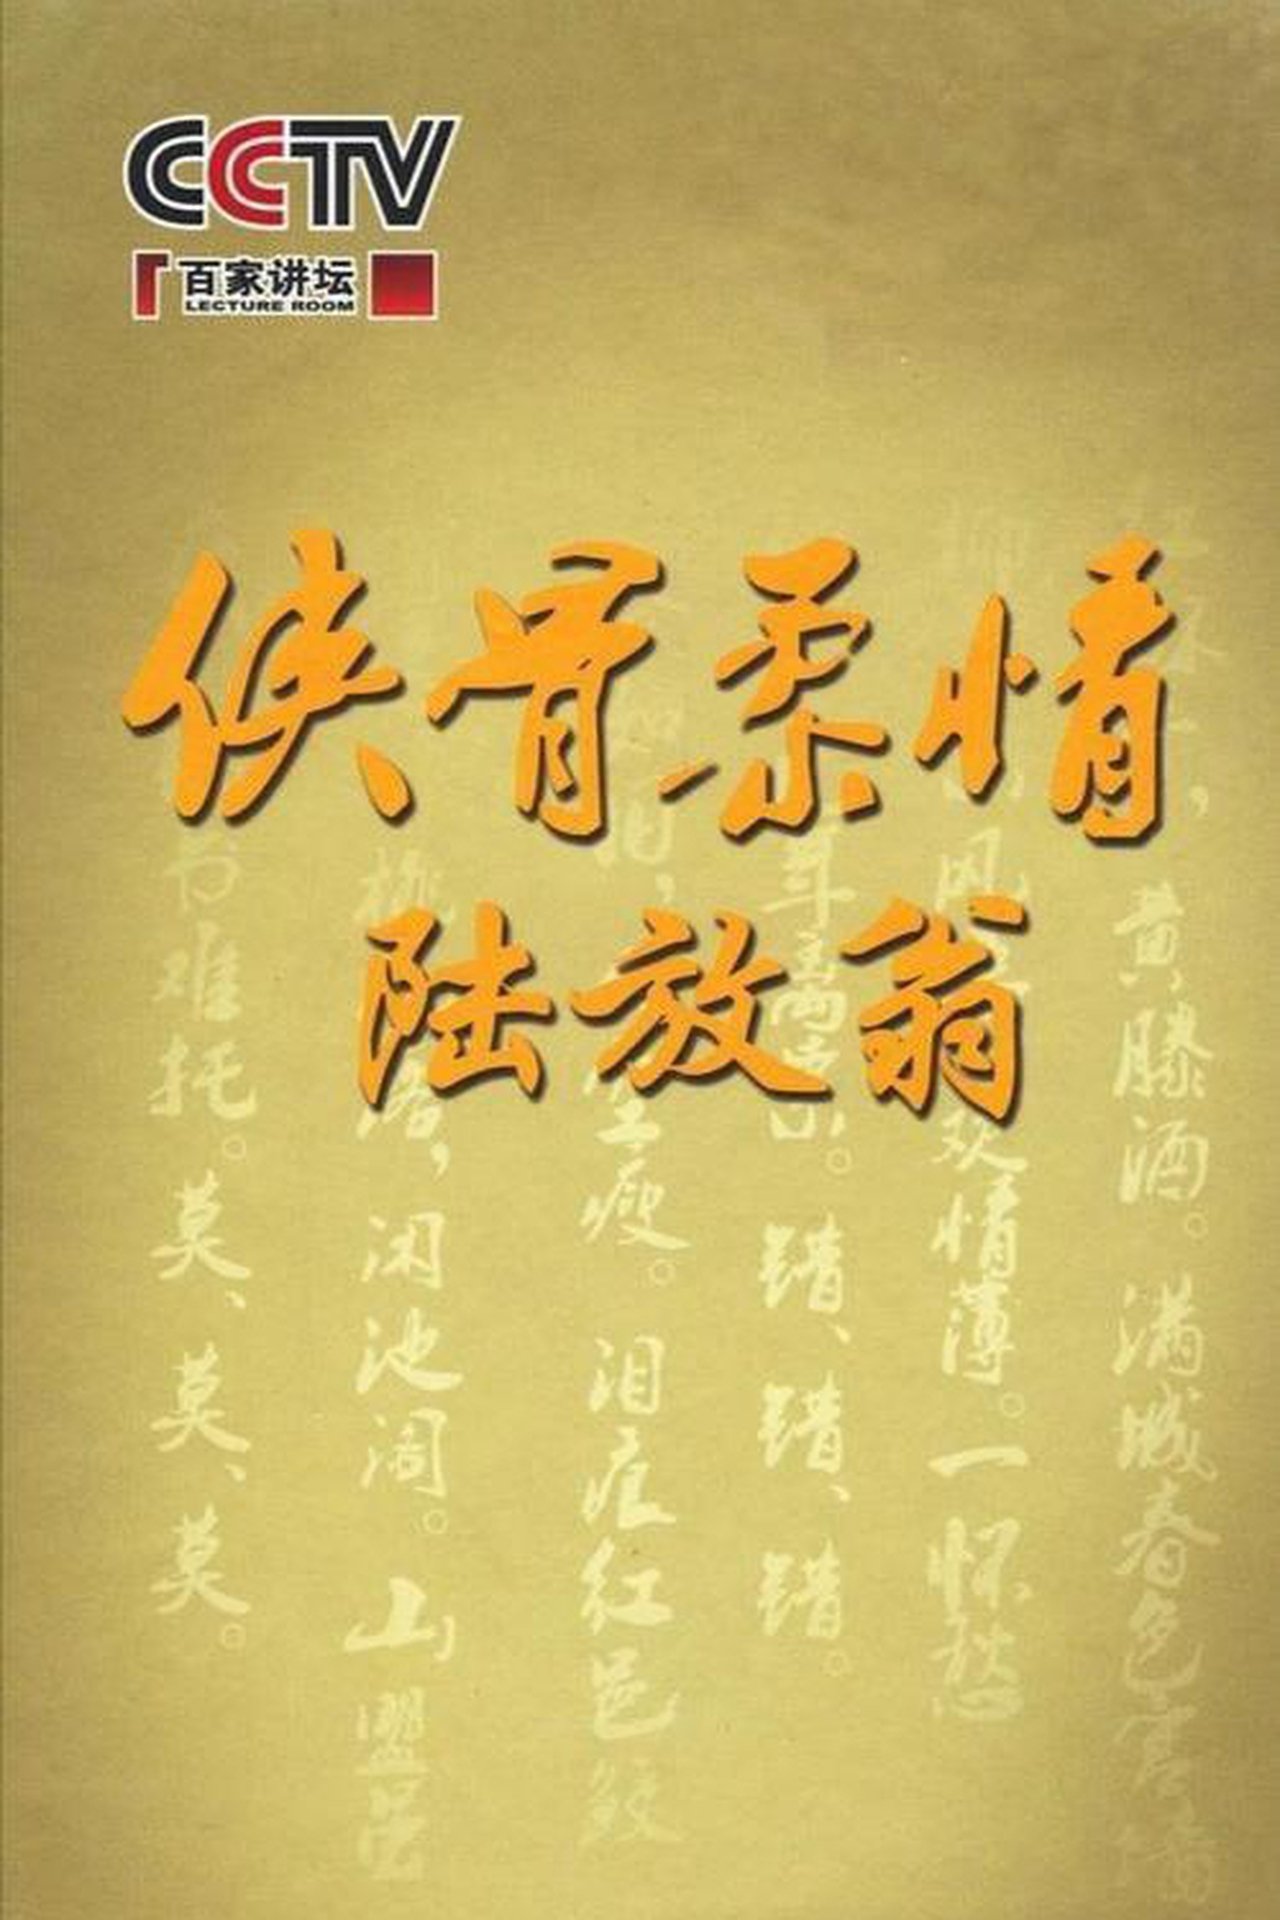 CCTV
百家讲坛
LECTURE ROOM
侠骨柔情
陆放翁
，黄滕酒。满城春色宫墙
风欢情薄。一怀愁
年离索。错、错、错。
旧，空瘦。泪痕红邑鲛
桃落，闲池阁。山盟虽
书难托。莫、莫、莫。